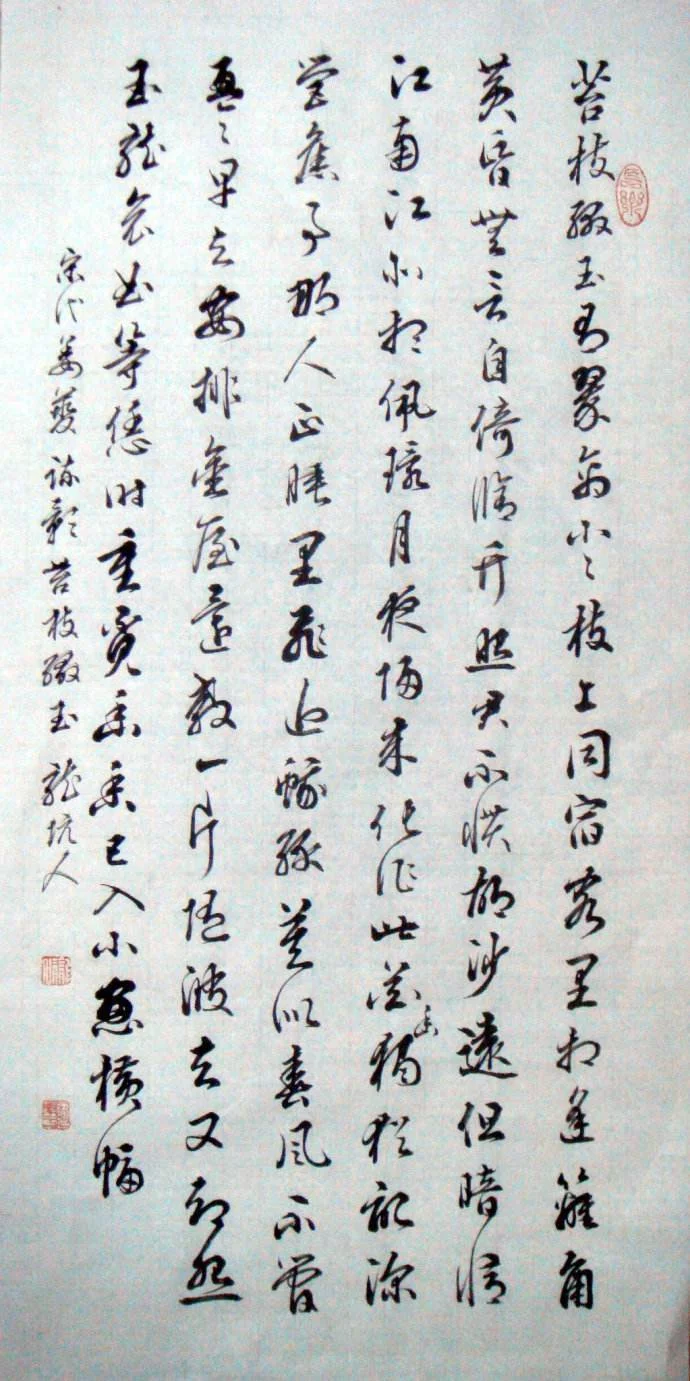 苔枝缀玉有翠禽小々枝上同宿客里相逢籬角
黄昏無言自倚脩竹照君不惯胡沙遠但暗憶
江南江北想佩環月夜归来化作此花幽独犹記深
宫舊事那人正睡里飛近蛾緑莫似春風不管
盈々早与安排金屋還教一片随波去又却怨
玉龍哀曲等恁时重覓幽香已入小窗横幅
宋代姜夔疏影苔枝缀玉 龍坑人